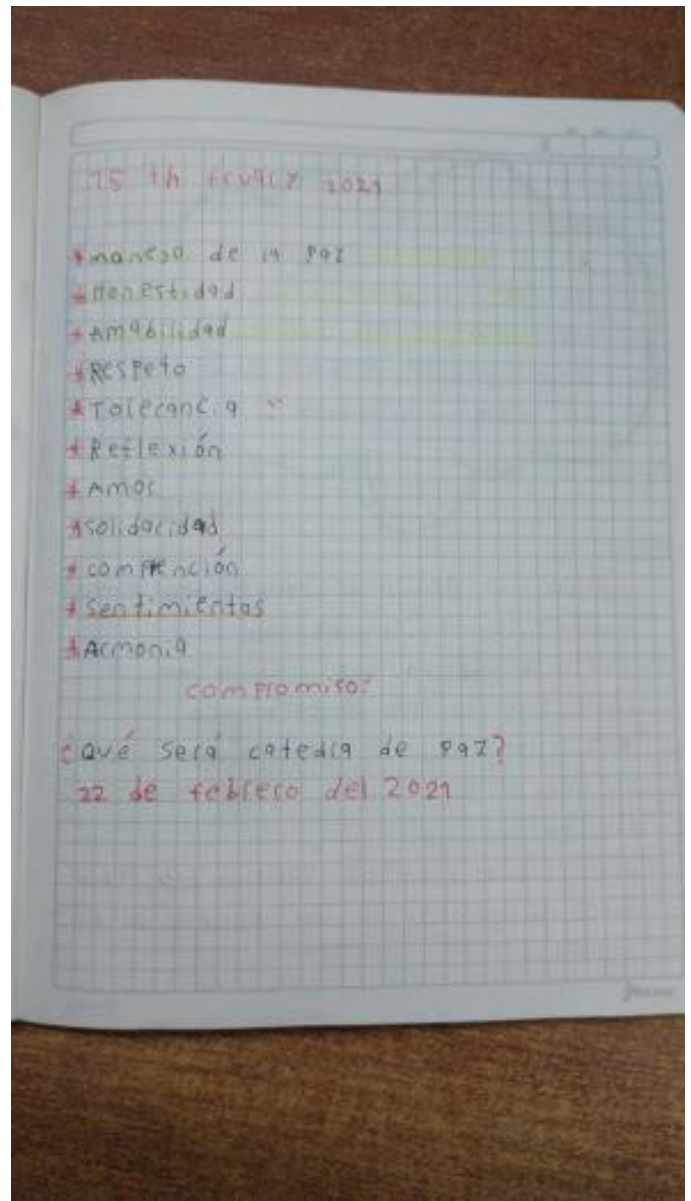 15 th 2021
* manera de la paz
* Honestidad
* Amabilidad
* Respeto
* Tolerancia
* Reflexión
* Amor
* solidaridad
* compención
* sentimientos
* Armonia
compromiso:
¿Qué será catedra de paz?
22 de febrero del 2021